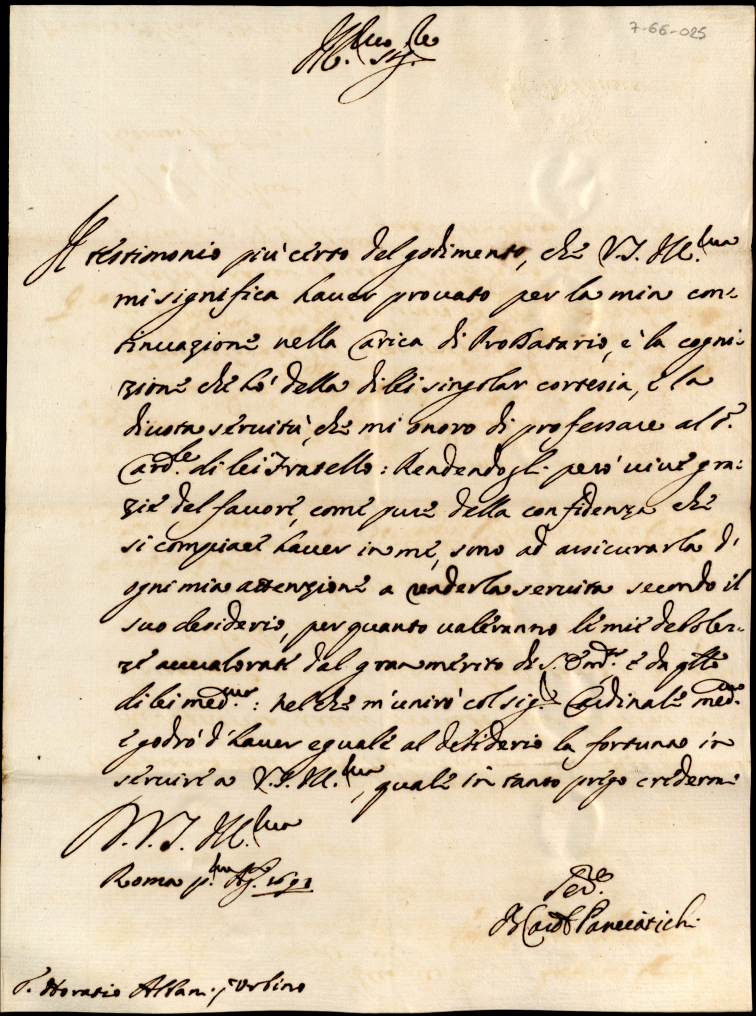 7-66-025
Ill.mo Sig.re
Il testimonio più certo del godimento, che V.S. Ill.ma
mi significa haver provato per la mia con-
tinuazione nella Carica di ProDatario, è la cogni-
zione che hò della di lei singolar cortesia, e la
divota servitù, che mi onoro di professare al S.r
Card.le di lei Fratello: Rendendogli però vive gra-
zie del favore, come pure della confidenza che
si compiace haver in me, sono ad assicurarla d'
ogni mia attenzione a renderla servita secondo il
suo desiderio, per quanto valeranno le mie debolez-
ze avvalorate dal gran merito di S. Em.za e da q.llo
di lei med.ma: nel che m'unirò col sig.r Cardinale med.mo
e godrò d'haver eguale al desiderio la fortuna in
servire a V.S. Ill.ma, quale in tanto prego credermi
D. V. S. Ill.ma
Roma p.mo Ag. 1691
Ser.re
B Card Panciatichi
S. Horatio Albani, Urbino